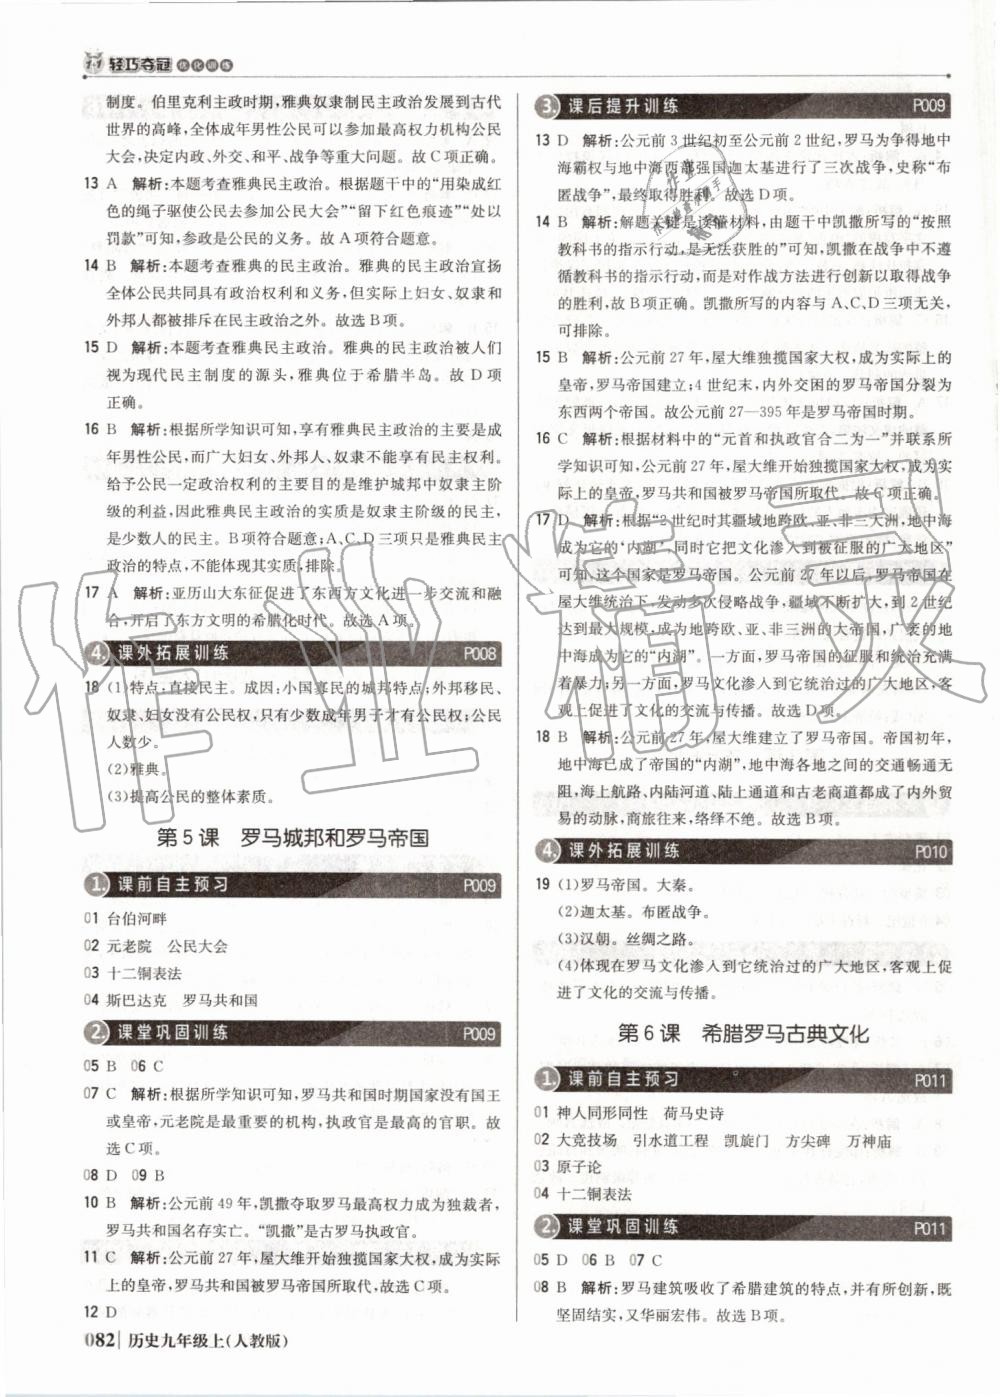 轻巧夺冠 优化训练
制度。伯里克利主政时期，雅典奴隶制民主政治发展到古代
世界的高峰，全体成年男性公民可以参加最高权力机构公民
大会，决定内政、外交、和平、战争等重大问题。故C项正确。
13 A 解析：本题考查雅典民主政治。根据题干中的“用染成红
色的绳子驱使公民去参加公民大会”“留下红色痕迹”“处以
罚款”可知，参政是公民的义务。故A项符合题意。
14 B 解析：本题考查雅典的民主政治。雅典的民主政治宣扬
全体公民共同具有政治权利和义务，但实际上妇女、奴隶和
外邦人都被排斥在民主政治之外。故选B项。
15 D 解析：本题考查雅典民主政治。雅典的民主政治被人们
视为现代民主制度的源头，雅典位于希腊半岛。故D项
正确。
16 B 解析：根据所学知识可知，享有雅典民主政治的主要是成
年男性公民，而广大妇女、外邦人、奴隶不能享有民主权利。
给予公民一定政治权利的主要目的是维护城邦中奴隶主阶
级的利益，因此雅典民主政治的实质是奴隶主阶级的民主，
是少数人的民主。B项符合题意；A、C、D三项只是雅典民主
政治的特点，不能体现其实质，排除。
17 A 解析：亚历山大东征促进了东西方文化进一步交流和融
合，开启了东方文明的希腊化时代。故选A项。
4. 课外拓展训练 P008
18 (1)特点：直接民主。成因：小国寡民的城邦特点；外邦移民、
奴隶、妇女没有公民权，只有少数成年男子才有公民权；公民
人数少。
(2)雅典。
(3)提高公民的整体素质。
第5课 罗马城邦和罗马帝国
1. 课前自主预习 P009
01 台伯河畔
02 元老院 公民大会
03 十二铜表法
04 斯巴达克 罗马共和国
2. 课堂巩固训练 P009
05 B 06 C
07 C 解析：根据所学知识可知，罗马共和国时期国家没有国王
或皇帝，元老院是最重要的机构，执政官是最高的官职。故
选C项。
08 D 09 B
10 B 解析：公元前49年，凯撒夺取罗马最高权力成为独裁者，
罗马共和国名存实亡。“凯撒”是古罗马执政官。
11 C 解析：公元前27年，屋大维开始独揽国家大权，成为实际
上的皇帝，罗马共和国被罗马帝国所取代，故选C项。
12 D
082 历史九年级上(人教版)
3. 课后提升训练 P009
13 D 解析：公元前3世纪初至公元前2世纪，罗马为争得地中
海霸权与地中海西部强国迦太基进行了三次战争，史称“布
匿战争”，最终取得胜利。故选D项。
14 B 解析：解题关键是读懂材料，由题干中凯撒所写的“按照
教科书的指示行动，是无法获胜的”可知，凯撒在战争中不遵
循教科书的指示行动，而是对作战方法进行创新以取得战争
的胜利，故B项正确。凯撒所写的内容与A、C、D三项无关，
可排除。
15 B 解析：公元前27年，屋大维独揽国家大权，成为实际上的
皇帝，罗马帝国建立；4世纪末，内外交困的罗马帝国分裂为
东西两个帝国。故公元前27—395年是罗马帝国时期。
16 C 解析：根据材料中的“元首和执政官合二为一”并联系所
学知识可知，公元前27年，屋大维开始独揽国家大权，成为实
际上的皇帝，罗马共和国被罗马帝国所取代。故C项正确。
17 D 解析：根据“2世纪时其疆域地跨欧、亚、非三大洲，地中海
成为它的‘内湖’，同时它把文化渗入到被征服的广大地区”
可知，这个国家是罗马帝国。公元前27年以后，罗马帝国在
屋大维统治下，发动多次侵略战争，疆域不断扩大，到2世纪
达到最大规模，成为地跨欧、亚、非三洲的大帝国，广袤的地中
海成了它的“内湖”。一方面，罗马帝国的征服和统治充满
着暴力；另一方面，罗马文化渗入到它统治过的广大地区，客
观上促进了文化的交流与传播。故选D项。
18 B 解析：公元前27年，屋大维建立了罗马帝国。帝国初年，
地中海已成了帝国的“内湖”，地中海各地之间的交通畅通无
阻，海上航路、内陆河道、陆上通道和古老商道都成了内外贸
易的动脉，商旅往来，络绎不绝。故选B项。
4. 课外拓展训练 P010
19 (1)罗马帝国。大秦。
(2)迦太基。布匿战争。
(3)汉朝。丝绸之路。
(4)体现在罗马文化渗入到它统治过的广大地区，客观上促
进了文化的交流与传播。
第6课 希腊罗马古典文化
1. 课前自主预习 P011
01 神人同形同性 荷马史诗
02 大竞技场 引水道工程 凯旋门 方尖碑 万神庙
03 原子论
04 十二铜表法
2. 课堂巩固训练 P011
05 D 06 B 07 C
08 B 解析：罗马建筑吸收了希腊建筑的特点，并有所创新，既
坚固结实，又华丽宏伟。故选B项。
作业精灵